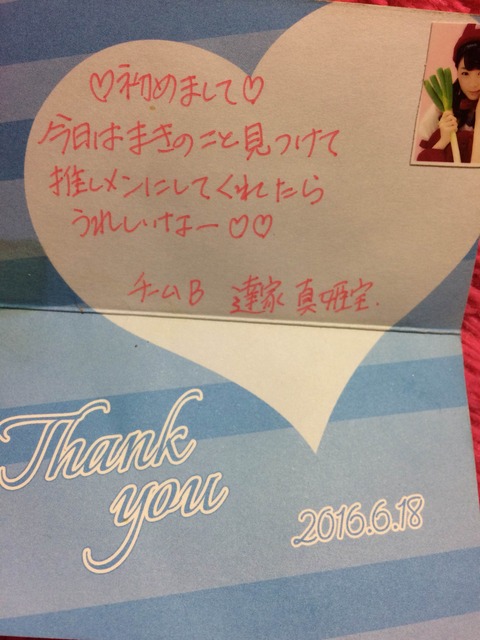 ♡初めまして♡
今日はまきのこと見つけて
推しメンにしてくれたら
うれしいなー♡♡
チームB 達家真姫宝.
Thank
you
2016.6.18